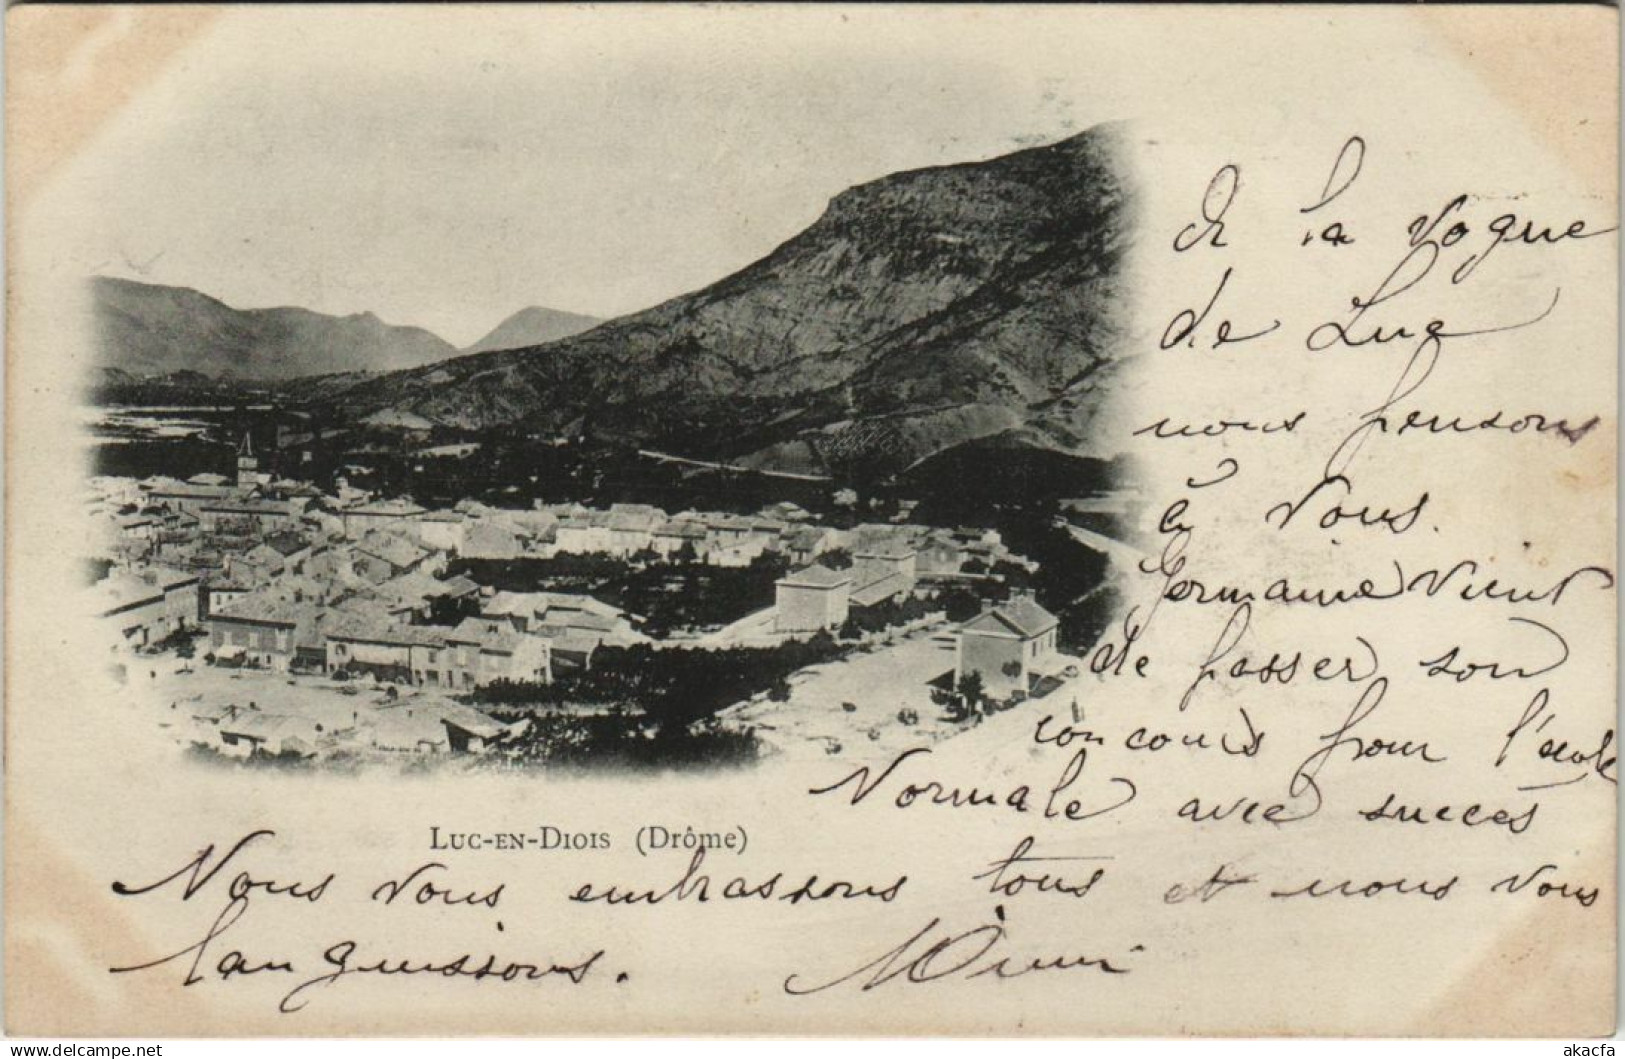 de la vogue
de Luc
nous pensons
à vous.
Germaine vient
de passer son
concours pour l'école
Normale avec succès
Luc-en-Diois (Drôme)
Nous vous embrassons tous et nous vous
languissons.
www.delcampe.net
akacfa